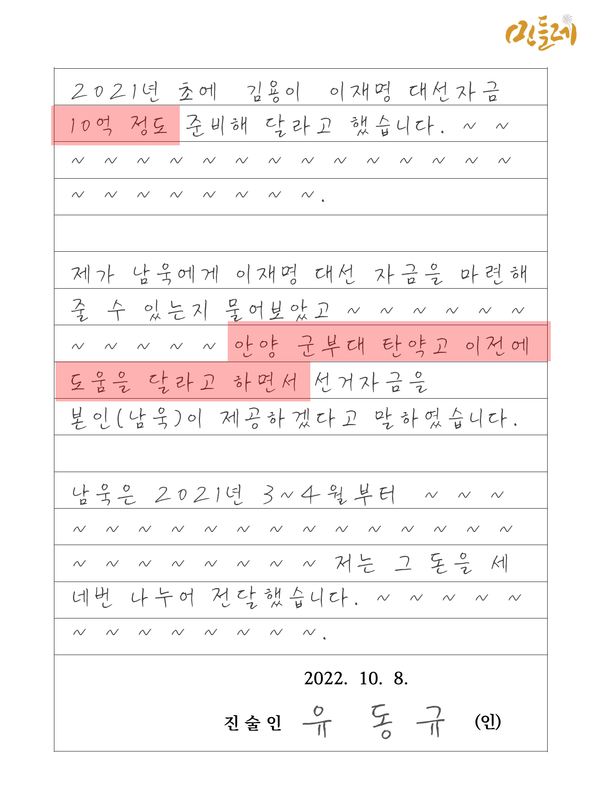 민들레
2021년 초에 김용이 이재명 대선자금
10억 정도 준비해 달라고 했습니다. ~ ~
~ ~ ~ ~ ~ ~ ~ ~ ~ ~ ~ ~ ~ ~
~ ~ ~ ~ ~ ~ ~ ~.
제가 남욱에게 이재명 대선 자금을 마련해
줄 수 있는지 물어보았고 ~ ~ ~ ~ ~ ~
~ ~ ~ ~ ~ 안양 군부대 탄약고 이전에
도움을 달라고 하면서 선거자금을
본인(남욱)이 제공하겠다고 말하였습니다.
남욱은 2021년 3~4월부터 ~ ~ ~
~ ~ ~ ~ ~ ~ ~ ~ ~ ~ ~ ~ ~ ~
~ ~ ~ ~ ~ ~ ~ ~ 저는 그 돈을 세
네번 나누어 전달했습니다. ~ ~ ~ ~ ~
~ ~ ~ ~ ~ ~ ~ ~.
2022. 10. 8.
진술인 유 동 규 (인)